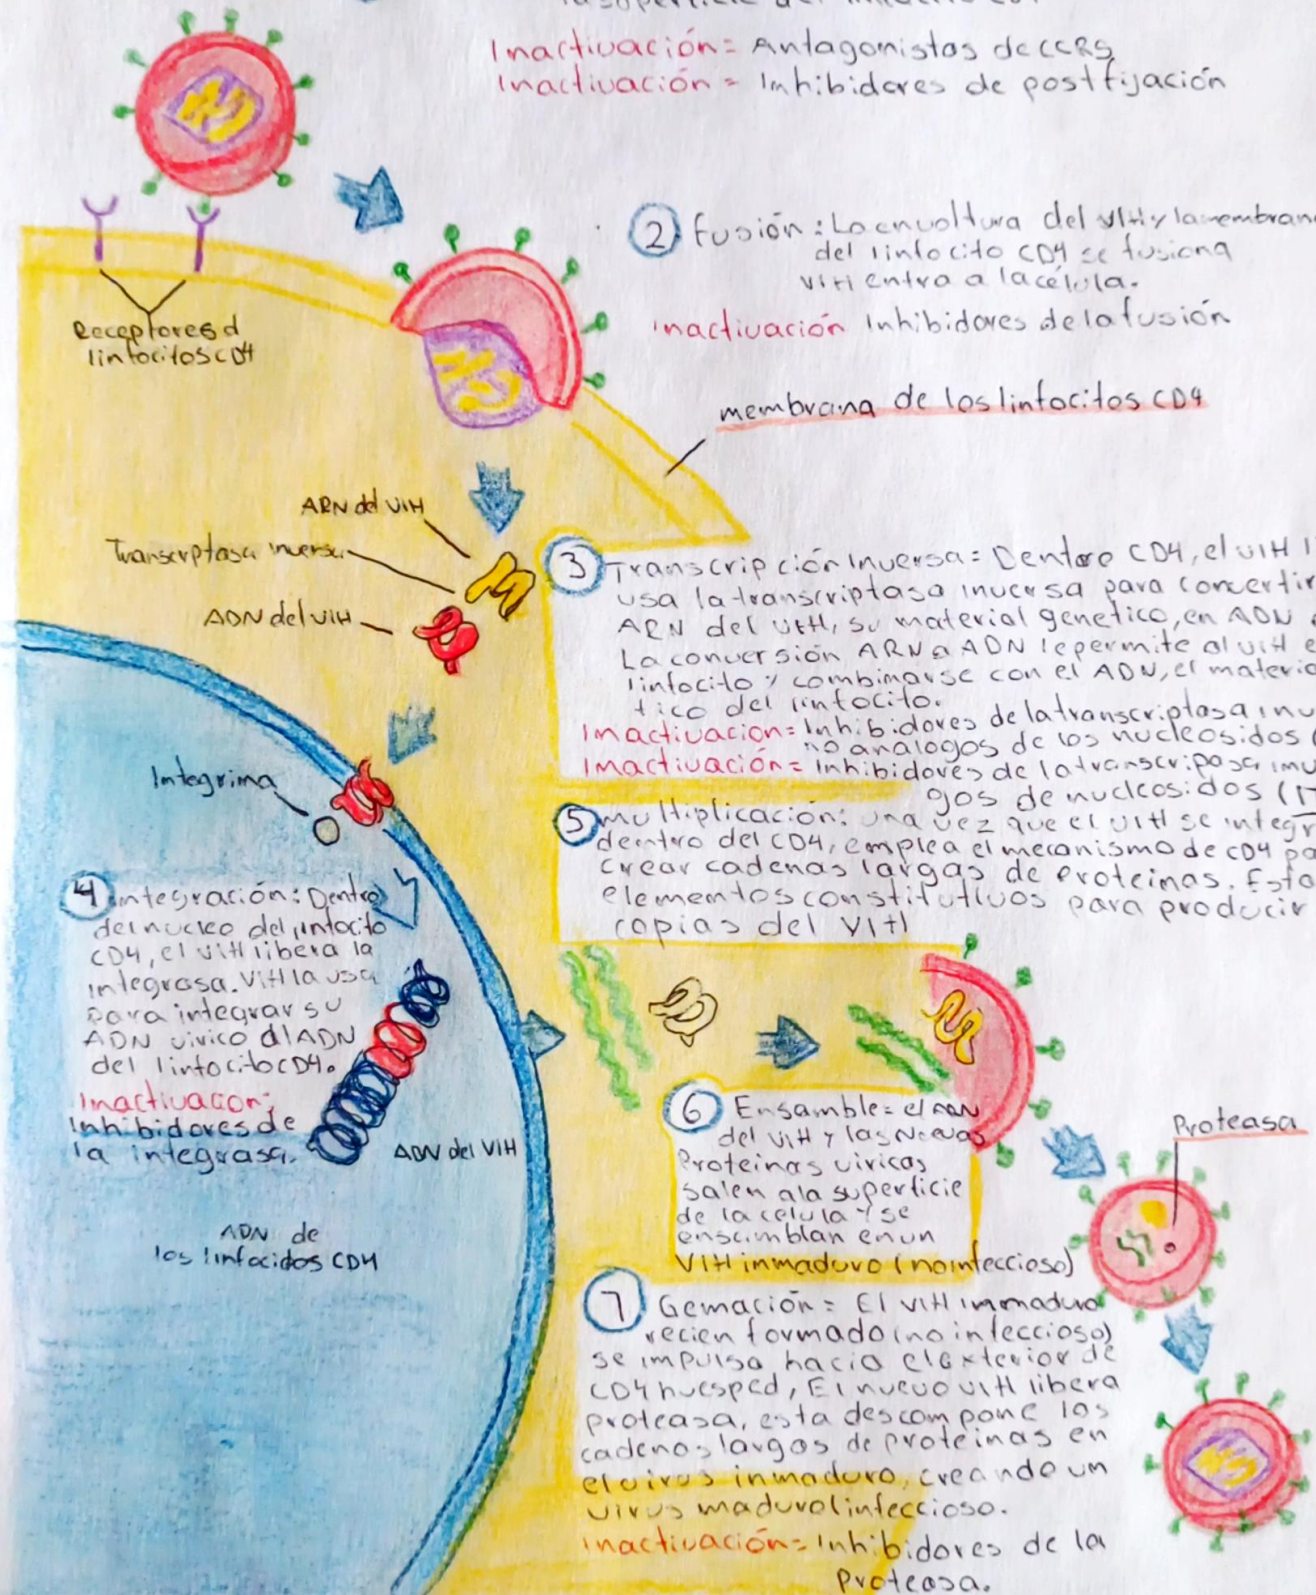 Inactivación= Antagonistas de CCR5
Inactivación= Inhibidores de postfijación
2 Fusión: La envoltura del VIH y la membran
del linfocito CD4 se fusiona
VIH entra a la célula.
Inactivación Inhibidores de la fusión
Receptores d
linfocitos CD4
membrana de los linfocitos CD4
ARN del VIH
Transcrptasa inversa
ADN del VIH
3 Transcripción Inversa= Dentro CD4, el VIH l
usa la transcriptasa inversa para convertir
ARN del VIH, su material genetico, en ADN
La conversión ARN a ADN le permite al VIH e
linfocito y combinarse con el ADN, el materia
tico del linfocito.
Inactivacion= Inhibidores de la transcriptasa inv
no analogos de los nucleosidos (
Inactivación= Inhibidores de la transcripasa inv
gos de nucleosidos (I
Integrima
5 Multiplicación: una vez que el VIH se integr
dentro del CD4, emplea el mecanismo de CD4 pa
crear cadenas largas de proteinas. Esto
elementos constitutivos para producir
copias del VIH
4 integración: Dentro
del nucleo del linfocito
CD4, el VIH libera la
integrasa. VIH la usa
para integrar su
ADN vivico al ADN
del linfocito CD4.
Inactivacion:
Inhibidores de
la integrasa.
ADN del VIH
ADN de
los linfocidos CD4
6 Ensamble= el ARN
del VIH y las Nuevas
Proteinas viricas
salen a la superficie
de la celula y se
ensamblan en un
VIH inmaduro (no infeccioso)
Proteasa
7 Gemación= El VIH inmaduro
recien formado (no infeccioso)
se impulsa hacia el exterior de
CD4 huesped, El nuevo VIH libera
proteasa, esta descompone los
cadenas largos de proteinas en
el virus inmaduro, creando un
virus maduro(infeccioso.
Inactivación= Inhibidores de la
Proteasa.